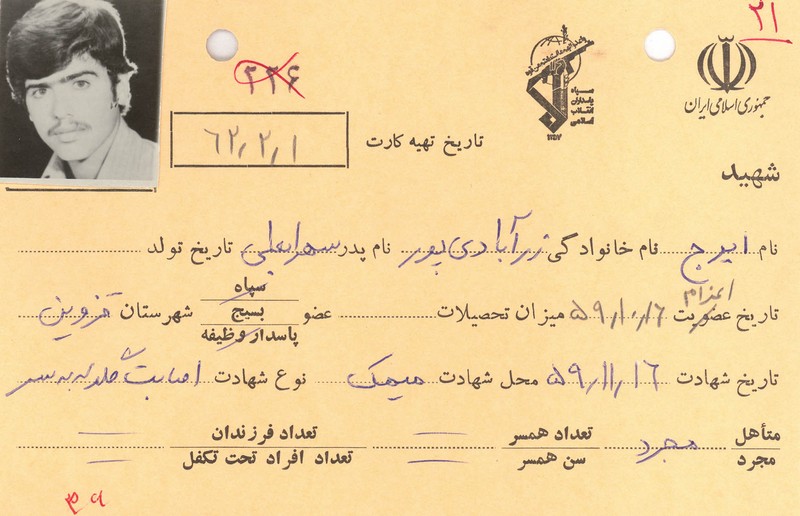 ۲۱
۲۲۶
جمهوری اسلامی ایران
سپاه پاسداران انقلاب اسلامی
۱۳۵۷
تاریخ تهیه کارت ۶۲/۲/۱
شهید
نام ایرج نام خانوادگی زرآبادی پور نام پدر سهرابعلی تاریخ تولد
تاریخ عضویت اعزام ۵۹/۱۰/۱۶ میزان تحصیلات عضو سپاه بسیج پاسدار وظیفه شهرستان قزوین
تاریخ شهادت ۵۹/۱۱/۱۶ محل شهادت میمک نوع شهادت اصابت گلوله به سر
متأهل مجرد مجرد تعداد همسر — سن همسر — تعداد فرزندان — تعداد افراد تحت تکفل —
۳۹